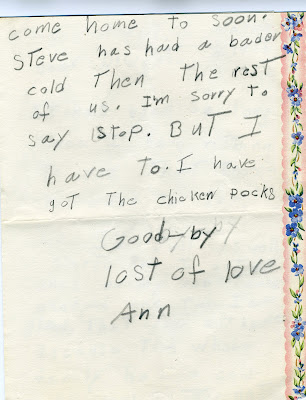 come home to soon.
Steve has had a bader
cold Then the rest
of us. I'm sorry to
say stop. BUT I
have to. I have
got The chicken pocks
Good-by
lost of love
Ann